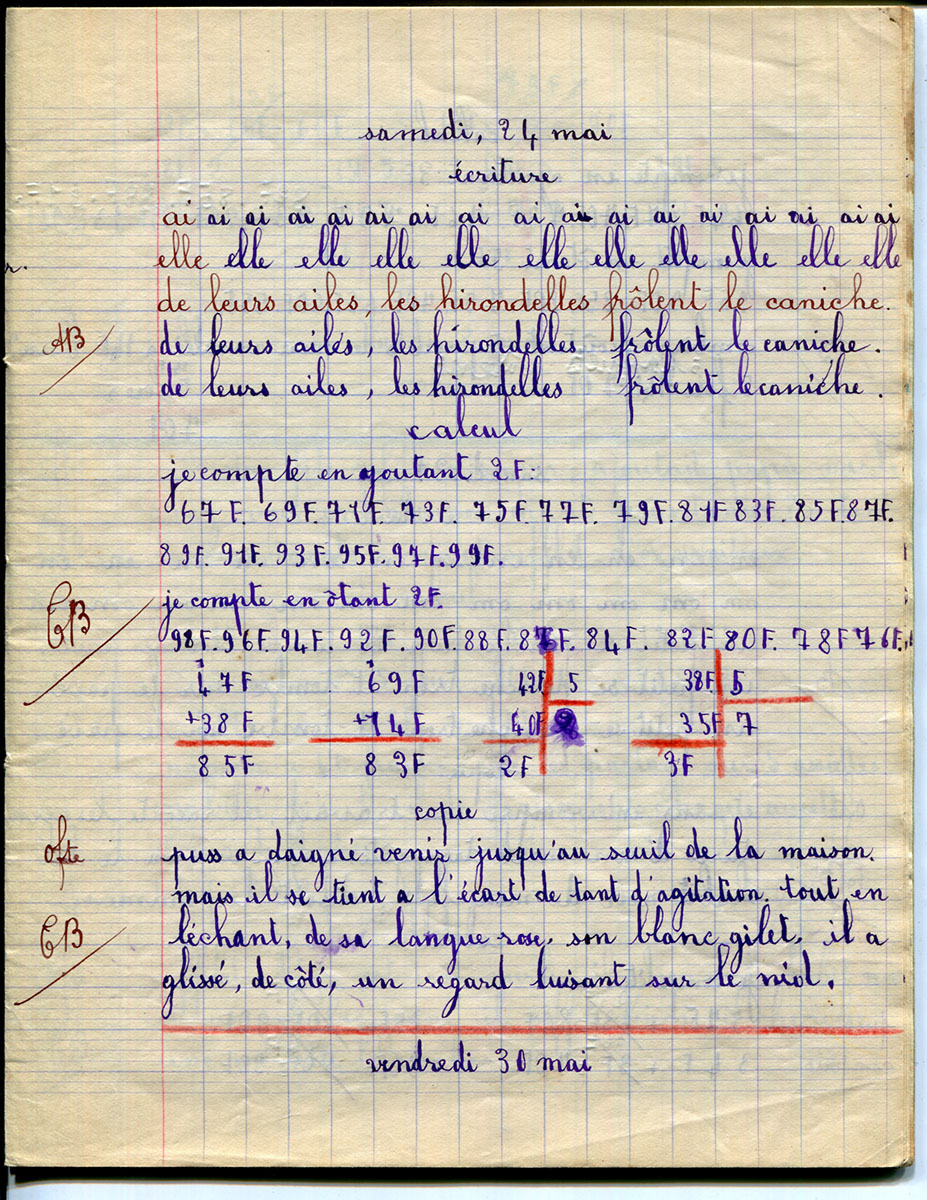 samedi, 24 mai
écriture
ai ai ai ai ai ai ai ai ai ai ai ai ai ai ai ai ai
r.
elle elle elle elle elle elle elle elle elle elle elle
de leurs ailes, les hirondelles frôlent le caniche.
AB
de leurs ailes, les hirondelles frôlent le caniche.
de leurs ailes, les hirondelles frôlent le caniche.
calcul
je compte en goutant 2F:
67 F. 69F. 71F. 73F. 75F. 77F. 79F. 81F 83F. 85F. 87F.
89F. 91F. 93F. 95F. 97F. 99F.
TB
je compte en ôtant 2F.
98F. 96F. 94F. 92F. 90F. 88F. 8 F. 84F. 82F 80F. 78F 76F.
1 1
47F 69F 42F 5 38F 5
+38F +14F 40F 8 35F 7
85F 83F 2F 3F
copie
puss a daigné venir jusqu'au seuil de la maison.
mais il se tient a l'écart de tant d'agitation. tout en
TB
léchant, de sa langue rose, son blanc gilet, il a
glissé, de côté, un regard luisant sur le nid.
vendredi 30 mai